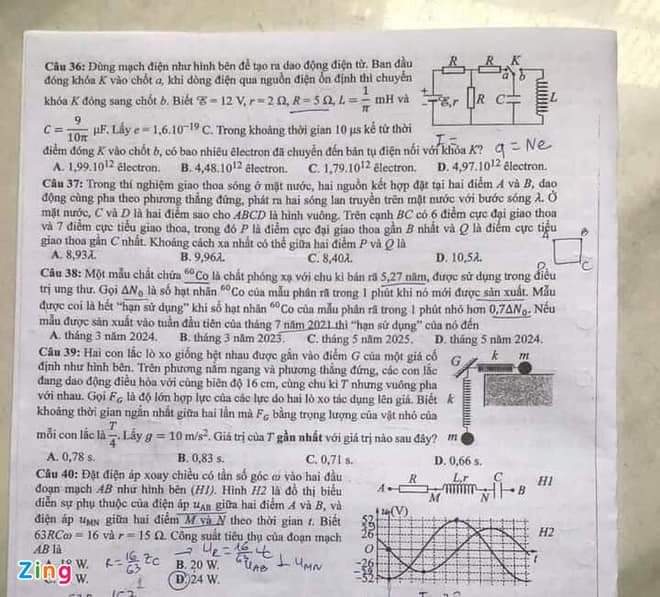 Câu 36: Dùng mạch điện như hình bên để tạo ra dao động điện từ. Ban đầu
đóng khóa K vào chốt a, khi dòng điện qua nguồn điện ổn định thì chuyển
khóa K đóng sang chốt b. Biết ℰ = 12 V, r = 2 Ω, R = 5 Ω, L = 1/π mH và
C = 9/10π μF. Lấy e = 1,6.10⁻¹⁹ C. Trong khoảng thời gian 10 μs kể từ thời
điểm đóng K vào chốt b, có bao nhiêu êlectron đã chuyển đến bản tụ điện nối với khóa K?
A. 1,99.10¹² êlectron. B. 4,48.10¹² êlectron. C. 1,79.10¹² êlectron. D. 4,97.10¹² êlectron.
R R K
a b
ℰ,r R C L
I =
q = Ne
Câu 37: Trong thí nghiệm giao thoa sóng ở mặt nước, hai nguồn kết hợp đặt tại hai điểm A và B, dao
động cùng pha theo phương thẳng đứng, phát ra hai sóng lan truyền trên mặt nước với bước sóng λ. Ở
mặt nước, C và D là hai điểm sao cho ABCD là hình vuông. Trên cạnh BC có 6 điểm cực đại giao thoa
và 7 điểm cực tiểu giao thoa, trong đó P là điểm cực đại giao thoa gần B nhất và Q là điểm cực tiểu
giao thoa gần C nhất. Khoảng cách xa nhất có thể giữa hai điểm P và Q là
A. 8,93λ. B. 9,96λ. C. 8,40λ. D. 10,5λ.
A B
D C
Câu 38: Một mẫu chất chứa ⁶⁰Co là chất phóng xạ với chu kì bán rã 5,27 năm, được sử dụng trong điều
trị ung thư. Gọi ΔN₀ là số hạt nhân ⁶⁰Co của mẫu phân rã trong 1 phút khi nó mới được sản xuất. Mẫu
được coi là hết "hạn sử dụng" khi số hạt nhân ⁶⁰Co của mẫu phân rã trong 1 phút nhỏ hơn 0,7ΔN₀. Nếu
mẫu được sản xuất vào tuần đầu tiên của tháng 7 năm 2021 thì "hạn sử dụng" của nó đến
A. tháng 3 năm 2024. B. tháng 3 năm 2023. C. tháng 5 năm 2025. D. tháng 5 năm 2024.
Câu 39: Hai con lắc lò xo giống hệt nhau được gắn vào điểm G của một giá cố
định như hình bên. Trên phương nằm ngang và phương thẳng đứng, các con lắc
đang dao động điều hòa với cùng biên độ 16 cm, cùng chu kì T nhưng vuông pha
với nhau. Gọi F_G là độ lớn hợp lực của các lực do hai lò xo tác dụng lên giá. Biết
khoảng thời gian ngắn nhất giữa hai lần mà F_G bằng trọng lượng của vật nhỏ của
mỗi con lắc là T/4. Lấy g = 10 m/s². Giá trị của T gần nhất với giá trị nào sau đây?
A. 0,78 s. B. 0,83 s. C. 0,71 s. D. 0,66 s.
G k m
k
m
Câu 40: Đặt điện áp xoay chiều có tần số góc ω vào hai đầu
đoạn mạch AB như hình bên (H1). Hình H2 là đồ thị biểu
diễn sự phụ thuộc của điện áp u_AB giữa hai điểm A và B, và
điện áp u_MN giữa hai điểm M và N theo thời gian t. Biết
63RCω = 16 và r = 15 Ω. Công suất tiêu thụ của đoạn mạch
AB là
W. B. 20 W.
W. D. 24 W.
R L,r C H1
A M N B
u(V)
52
39
26
O t H2
-26
-39
-52
R = 16/63 Zc
U_R = 16/63 U_C
U_AB ⊥ U_MN
Zing